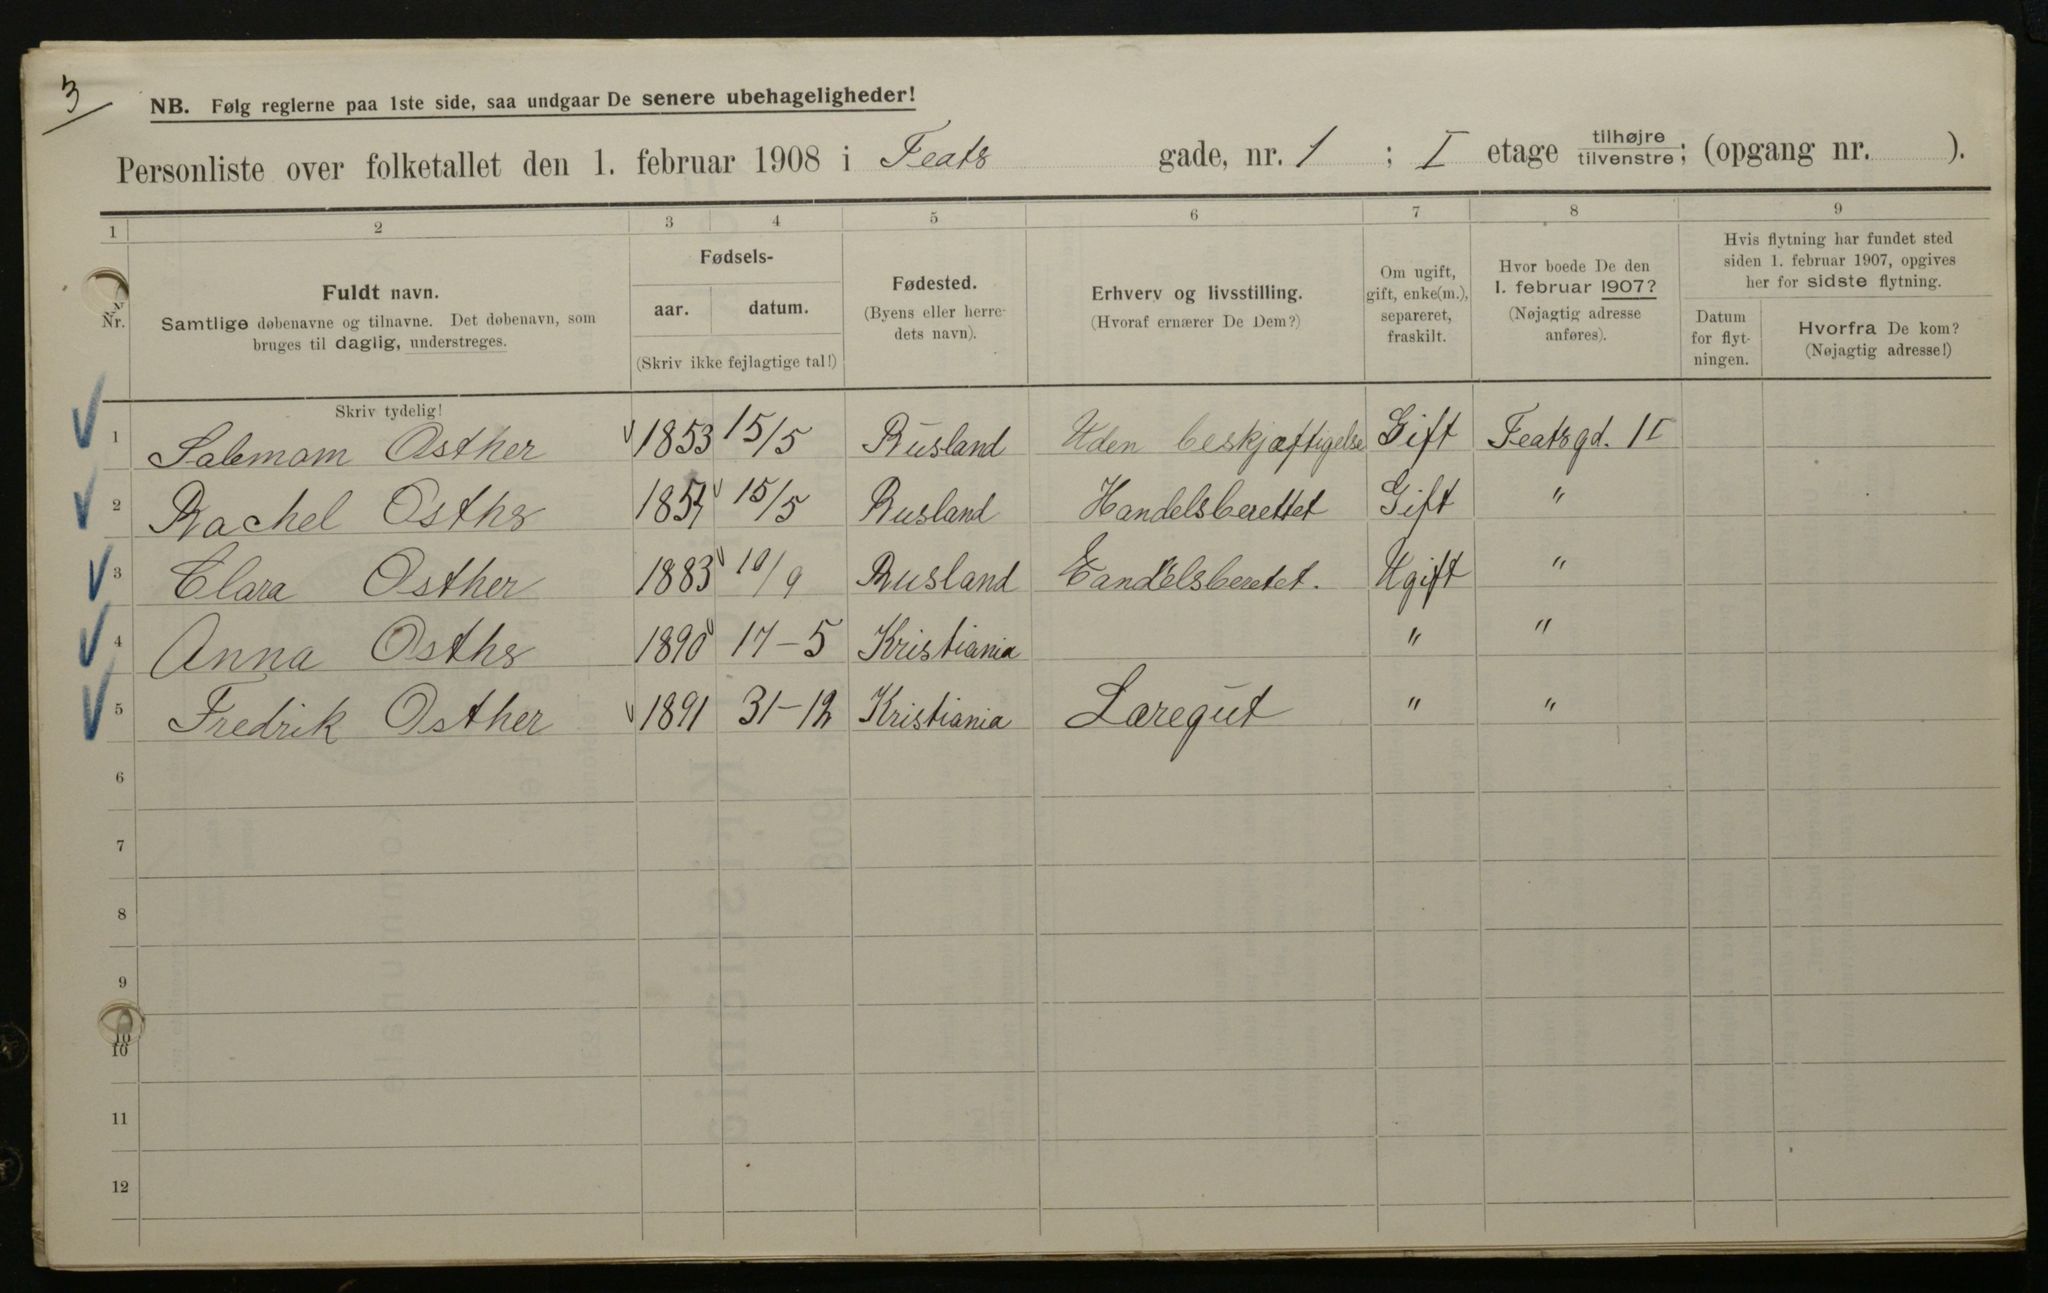 3
NB. Følg reglerne paa 1ste side, saa undgaar De senere ubehageligheder!
Personliste over folketallet den 1. februar 1908 i Feats gade, nr. 1 ; I etage tilhøjre tilvenstre; (opgang nr. ).
1 2 3 4 5 6 7 8 9
Nr.
Fuldt navn.
Samtlige døbenavne og tilnavne. Det døbenavn, som
bruges til daglig, understreges.
Fødsels-
aar. datum.
(Skriv ikke fejlagtige tal!)
Fødested.
(Byens eller herre-
dets navn).
Erhverv og livsstilling.
(Hvoraf ernærer De Dem?)
Om ugift,
gift, enke(m.),
separeret,
fraskilt.
Hvor boede De den
1. februar 1907?
(Nøjagtig adresse
anføres).
Hvis flytning har fundet sted
siden 1. februar 1907, opgives
her for sidste flytning.
Datum
for flyt-
ningen.
Hvorfra De kom?
(Nøjagtig adresse!)
Skriv tydelig!
1 Salemom Osther 1853 15/5 Rusland Uden beskjæftigelse Gift Featsgd. 1 I
2 Rachel Osthr 15/5 Rusland Handelsberettet Gift "
3 Clara Osther 1883 10/9 Rusland Handelsberetet. Ugift "
4 Anna Osthr 1890 17-5 Kristiania " "
5 Fredrik Osther 1891 31-12 Kristiania Læregut " "
6
7
8
9
10
10
11
12